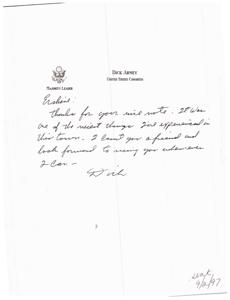 DICK ARMEY
UNITED STATES CONGRESS
MAJORITY LEADER
Erskine:
Thanks for your nice note. It was
one of the nicest things I've experienced in
this town. I count you a friend and
look forward to seeing you whenever
I can –
Dick
9/2/97